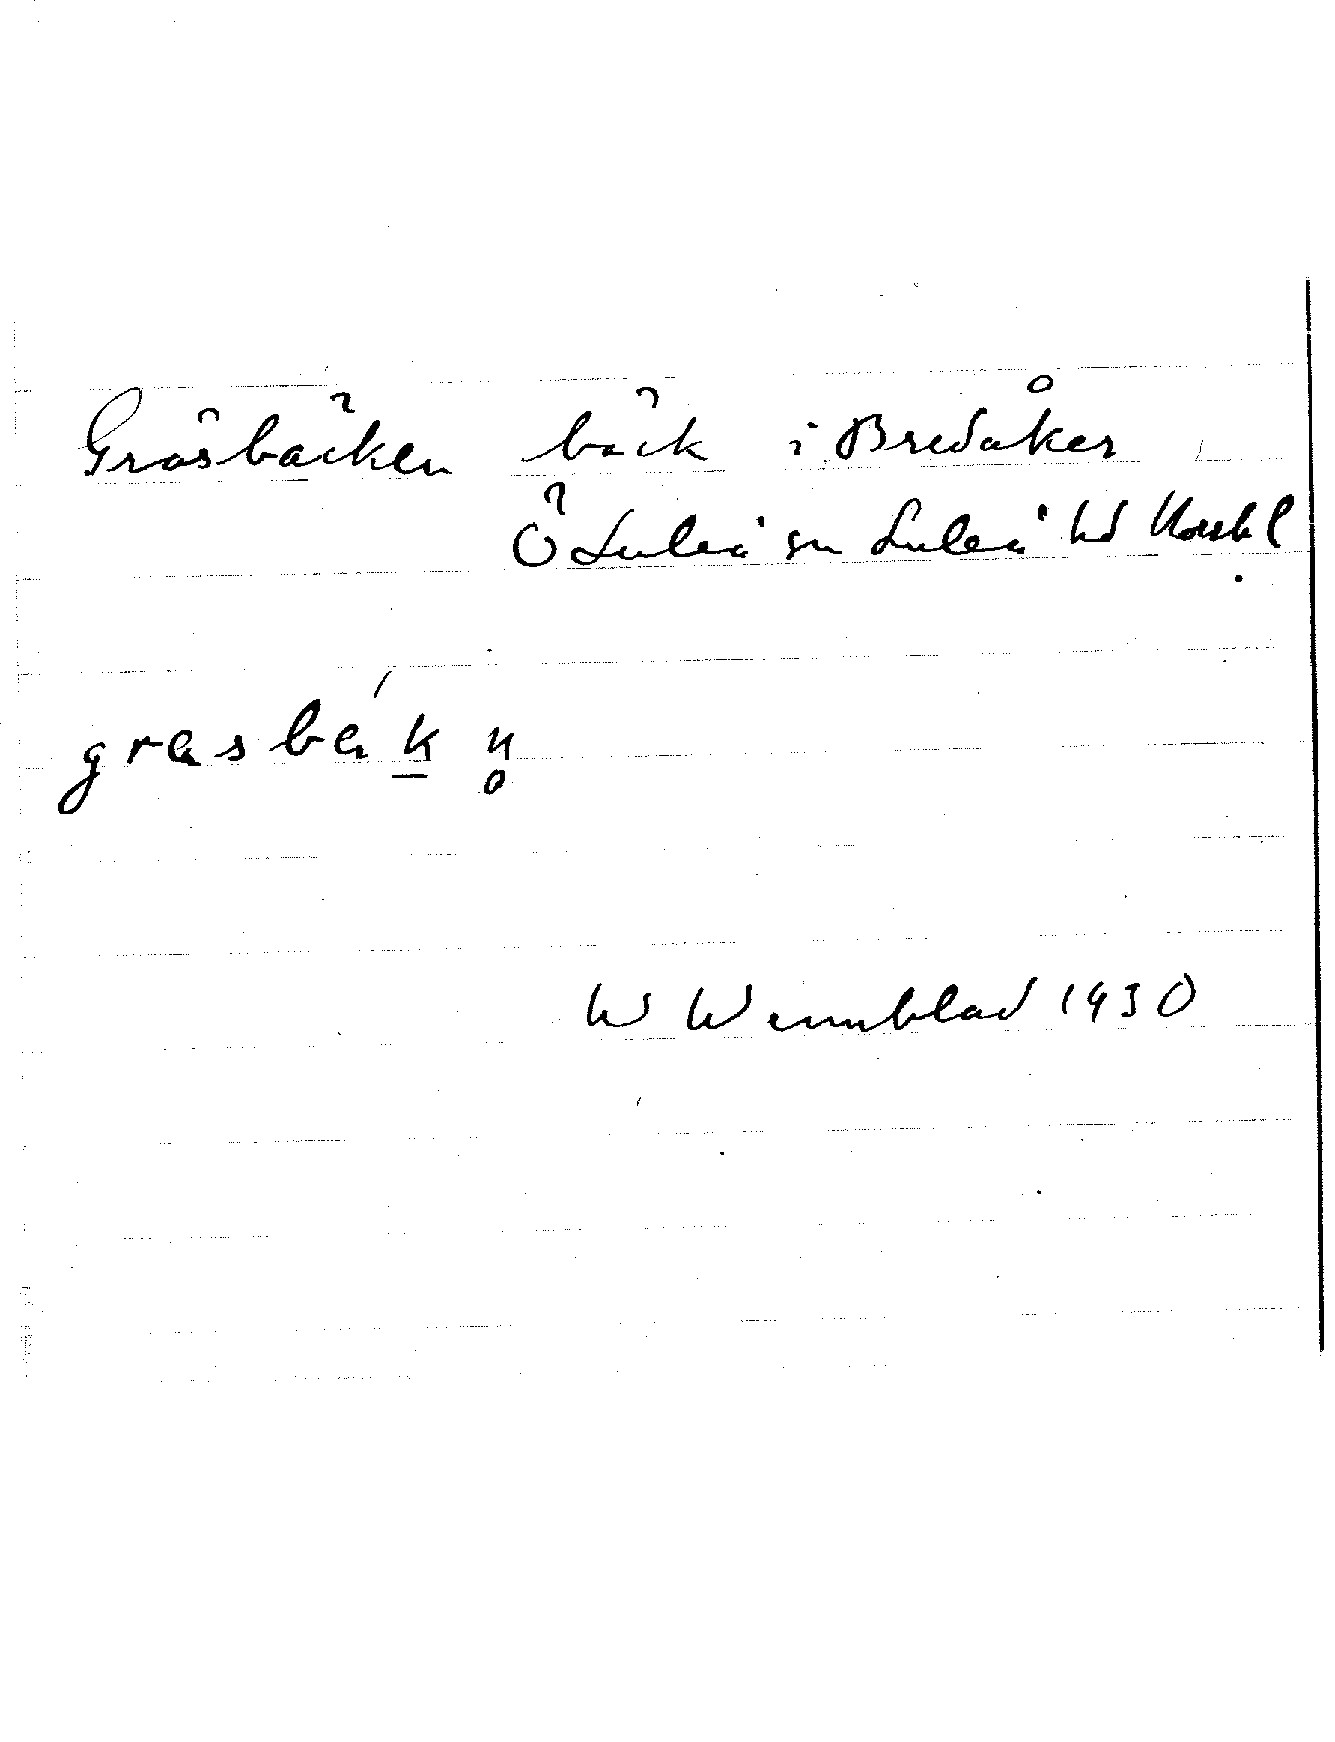 Gräsbäcken bäck i Bredåker
Ö Luleå sn Luleå hd
grasbäkn̥
W Wennblad 1930